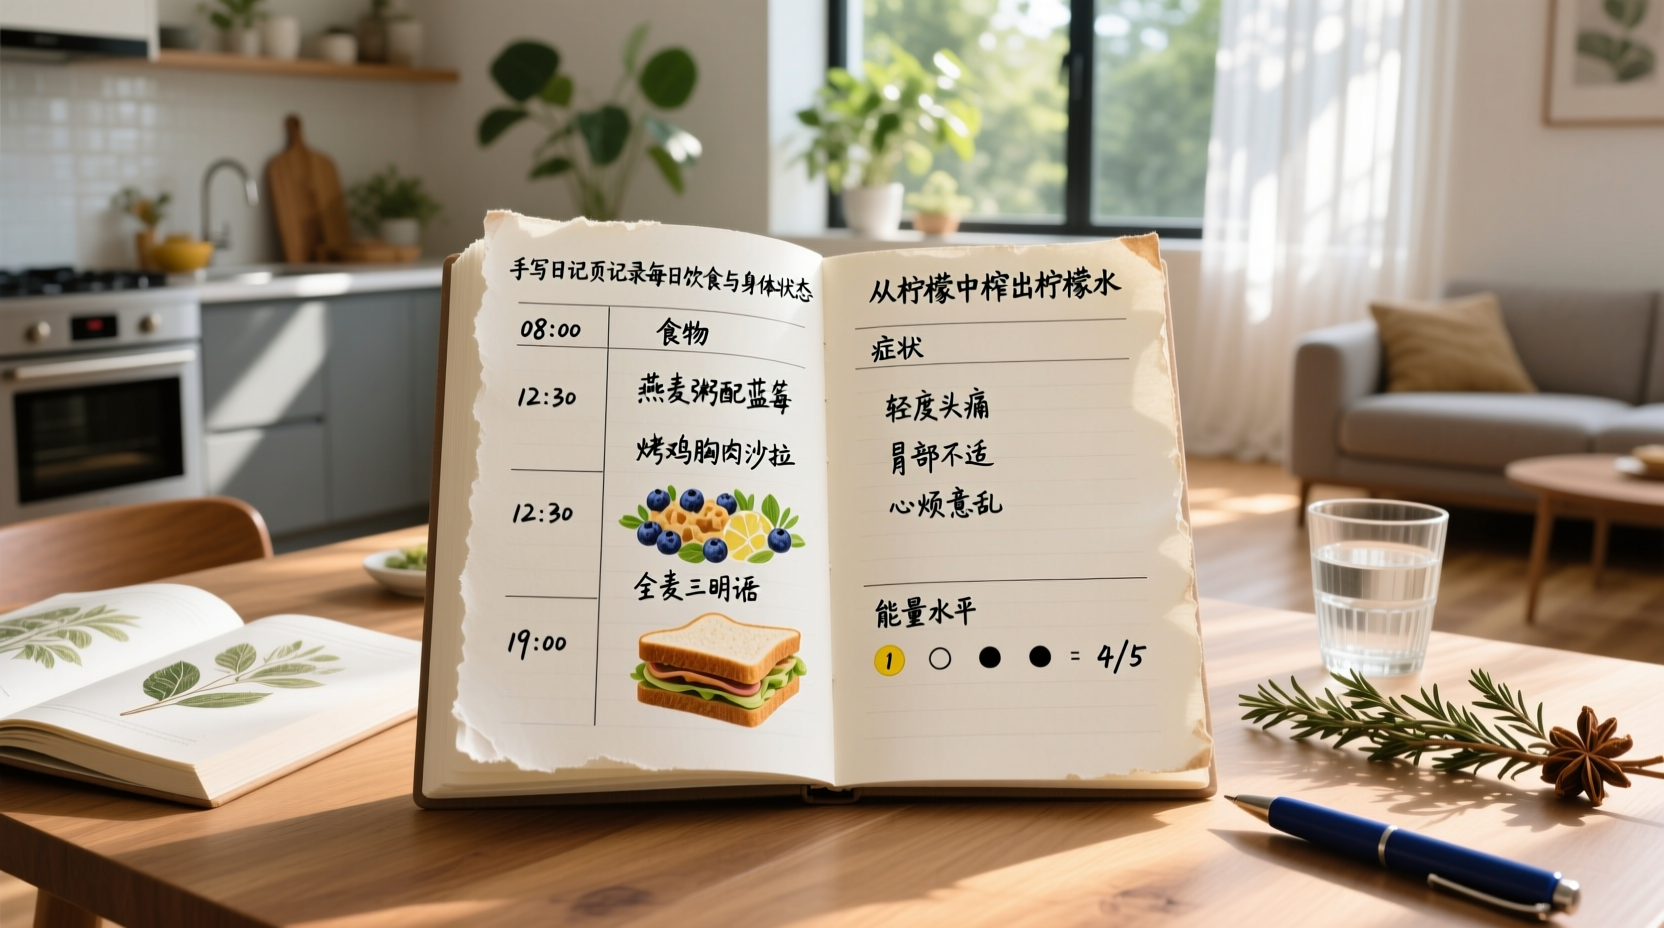 手写日记页记录每日饮食与身体状态
08:00 食物
12:30 燕麦粥配蓝莓
烤鸡胸肉沙拉
12:30
全麦三明语
19:00
从柠檬中榨出柠檬水
症状
轻度头痛
胃部不适
心烦意乱
能量水平
1 = 4/5